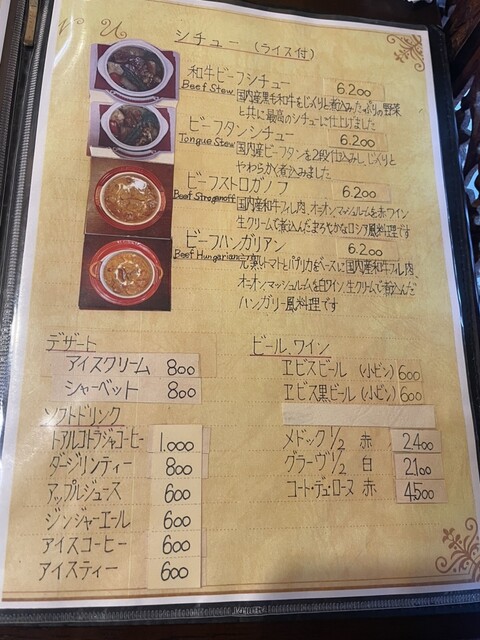 シチュー (ライス付)
和牛ビーフシチュー 6.200
Beef Stew 国内産黒毛和牛をじっくりと煮込みたっぷりの野菜
と共に最高のシチューに仕上げました
ビーフタンシチュー 6.200
Tongue Stew 国内産ビーフタンを2段仕込みし、じっくりと
やわらかく煮込みました
ビーフストロガノフ 6.200
Beef Stroganoff 国内産和牛フィレ肉、オニオン、マッシュルームを赤ワイン
生クリームで煮込んだまろやかなロシア風料理です
ビーフハンガリアン 6.200
Beef Hungarian 完熟トマトとパプリカをベースに国内産和牛フィレ肉、
オニオン、マッシュルームを白ワイン、生クリームで煮込んだ
ハンガリー風料理です
デザート
アイスクリーム 800
シャーベット 800
ソフトドリンク
トアルコトラジャコーヒー 1.000
ダージリンティー 800
アップルジュース 600
ジンジャーエール 600
アイスコーヒー 600
アイスティー 600
ビール、ワイン
ヱビスビール (小ビン) 600
ヱビス黒ビール (小ビン) 600
メドック 1/2 赤 2.400
グラーヴ 1/2 白 2.100
コート・デュ・ローヌ 赤 4.500